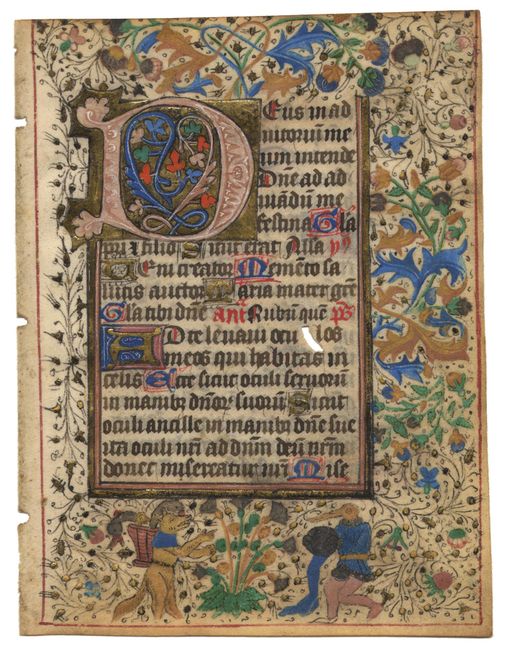 DEus in ad
iutoriū me
um intende
Dn̄e ad ad
iuuādū me
festina Gla
pr̄i ⁊ filio Sicut erat Alla p̄s
Ueni creator Memēto sa
lutis auctor Maria mater gr̄e
Gla tibi dn̄e Ant Rubrū que p̄s
AD te leuaui ocu los
meos qui habitas in
celis Ecce sicut oculi seruorū
in manibꝫ dn̄orꝫ suorū Sicut
oculi ancille in manibꝫ dn̄e sue
ita oculi nr̄i ad dn̄m deū nr̄m
donec misereatur nr̄i Mise